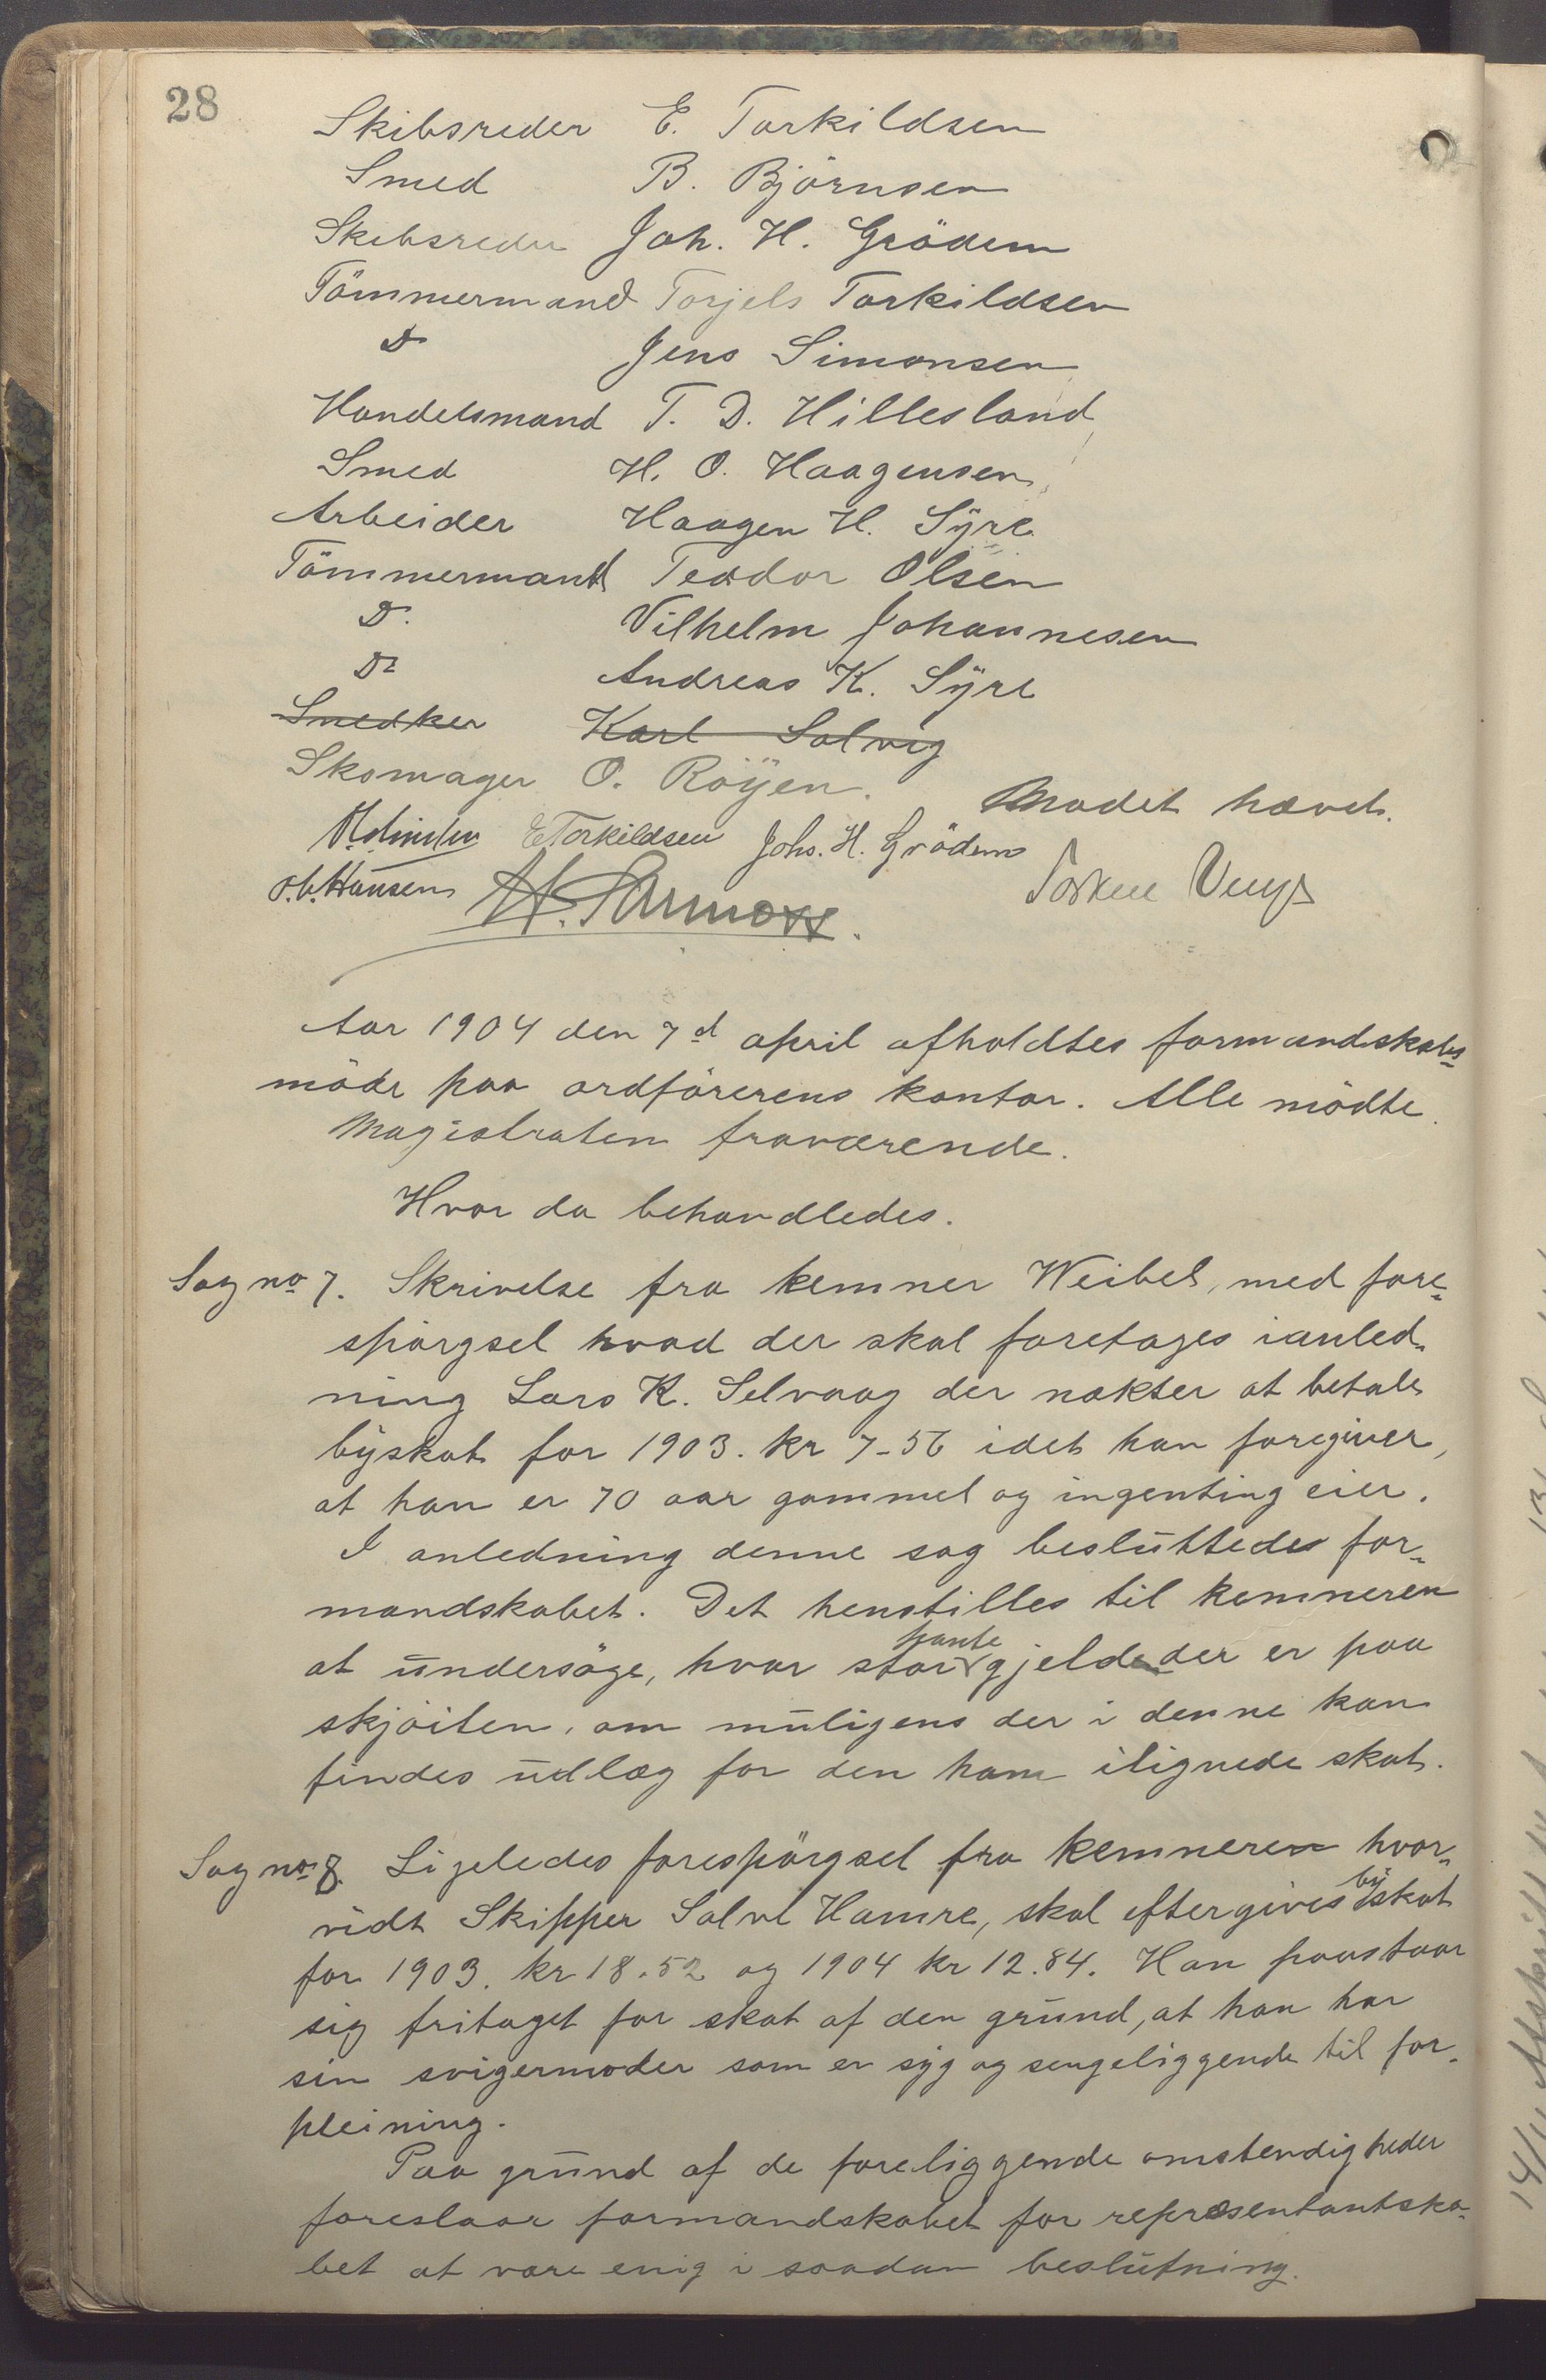 28
Skibsreder E. Torkildsen
Smed B. Björnsen
Skibsreder Joh. H. Grödem
Tömmermand Torjels Torkildsen
Do Jens Simonsen
Handelsmand T. D. Hillesland
Smed H. O. Haagensen
Arbeider Haagen H. Syre
Tömmermand Teodor Olsen
Do. Vilhelm Johannesen
Do Andreas K. Syre
Snedker Karl Solvig
Skomager O. Röyen.
Mødet hævet.
E Torkildsen Johs. H. Grödem
O. C. Hansen
Aar 1904 den 7d april afholdtes formandskabs-
möde paa ordförerens kontor. Alle mödte.
Magistraten fraværende.
Hvor da behandledes.
Sag no 7. Skrivelse fra kemner Weibel, med fore-
spörgsel hvad der skal foretages ianled-
ning Lars K. Selvaag der nekter at betale
byskat for 1903. kr 7-56 idet han foregiver,
at han er 70 aar gammel og ingenting eier.
I anledning denne sag besluttedes for-
mandskabet. Det henstilles til kemneren
at undersöge, hvor stor pante gjeld der er paa
skjöiten, om muligens der i denne kan
findes udlæg for den ham ilignede skat.
Sag no 8. Ligeledes forespörgsel fra kemneren hvor-
vidt Skipper Salve Hamre, skal eftergives by skat
for 1903. kr 18.52 og 1904 kr 12.84. Han paastaar
sig fritaget for skat af den grund, at han har
sin svigermoder som er syg og sengeliggende til for-
pleining.
Paa grund af de foreliggende omstendigheder
foreslaar formandskabet for repræsentantska-
bet at være enig i saadan beslutning.